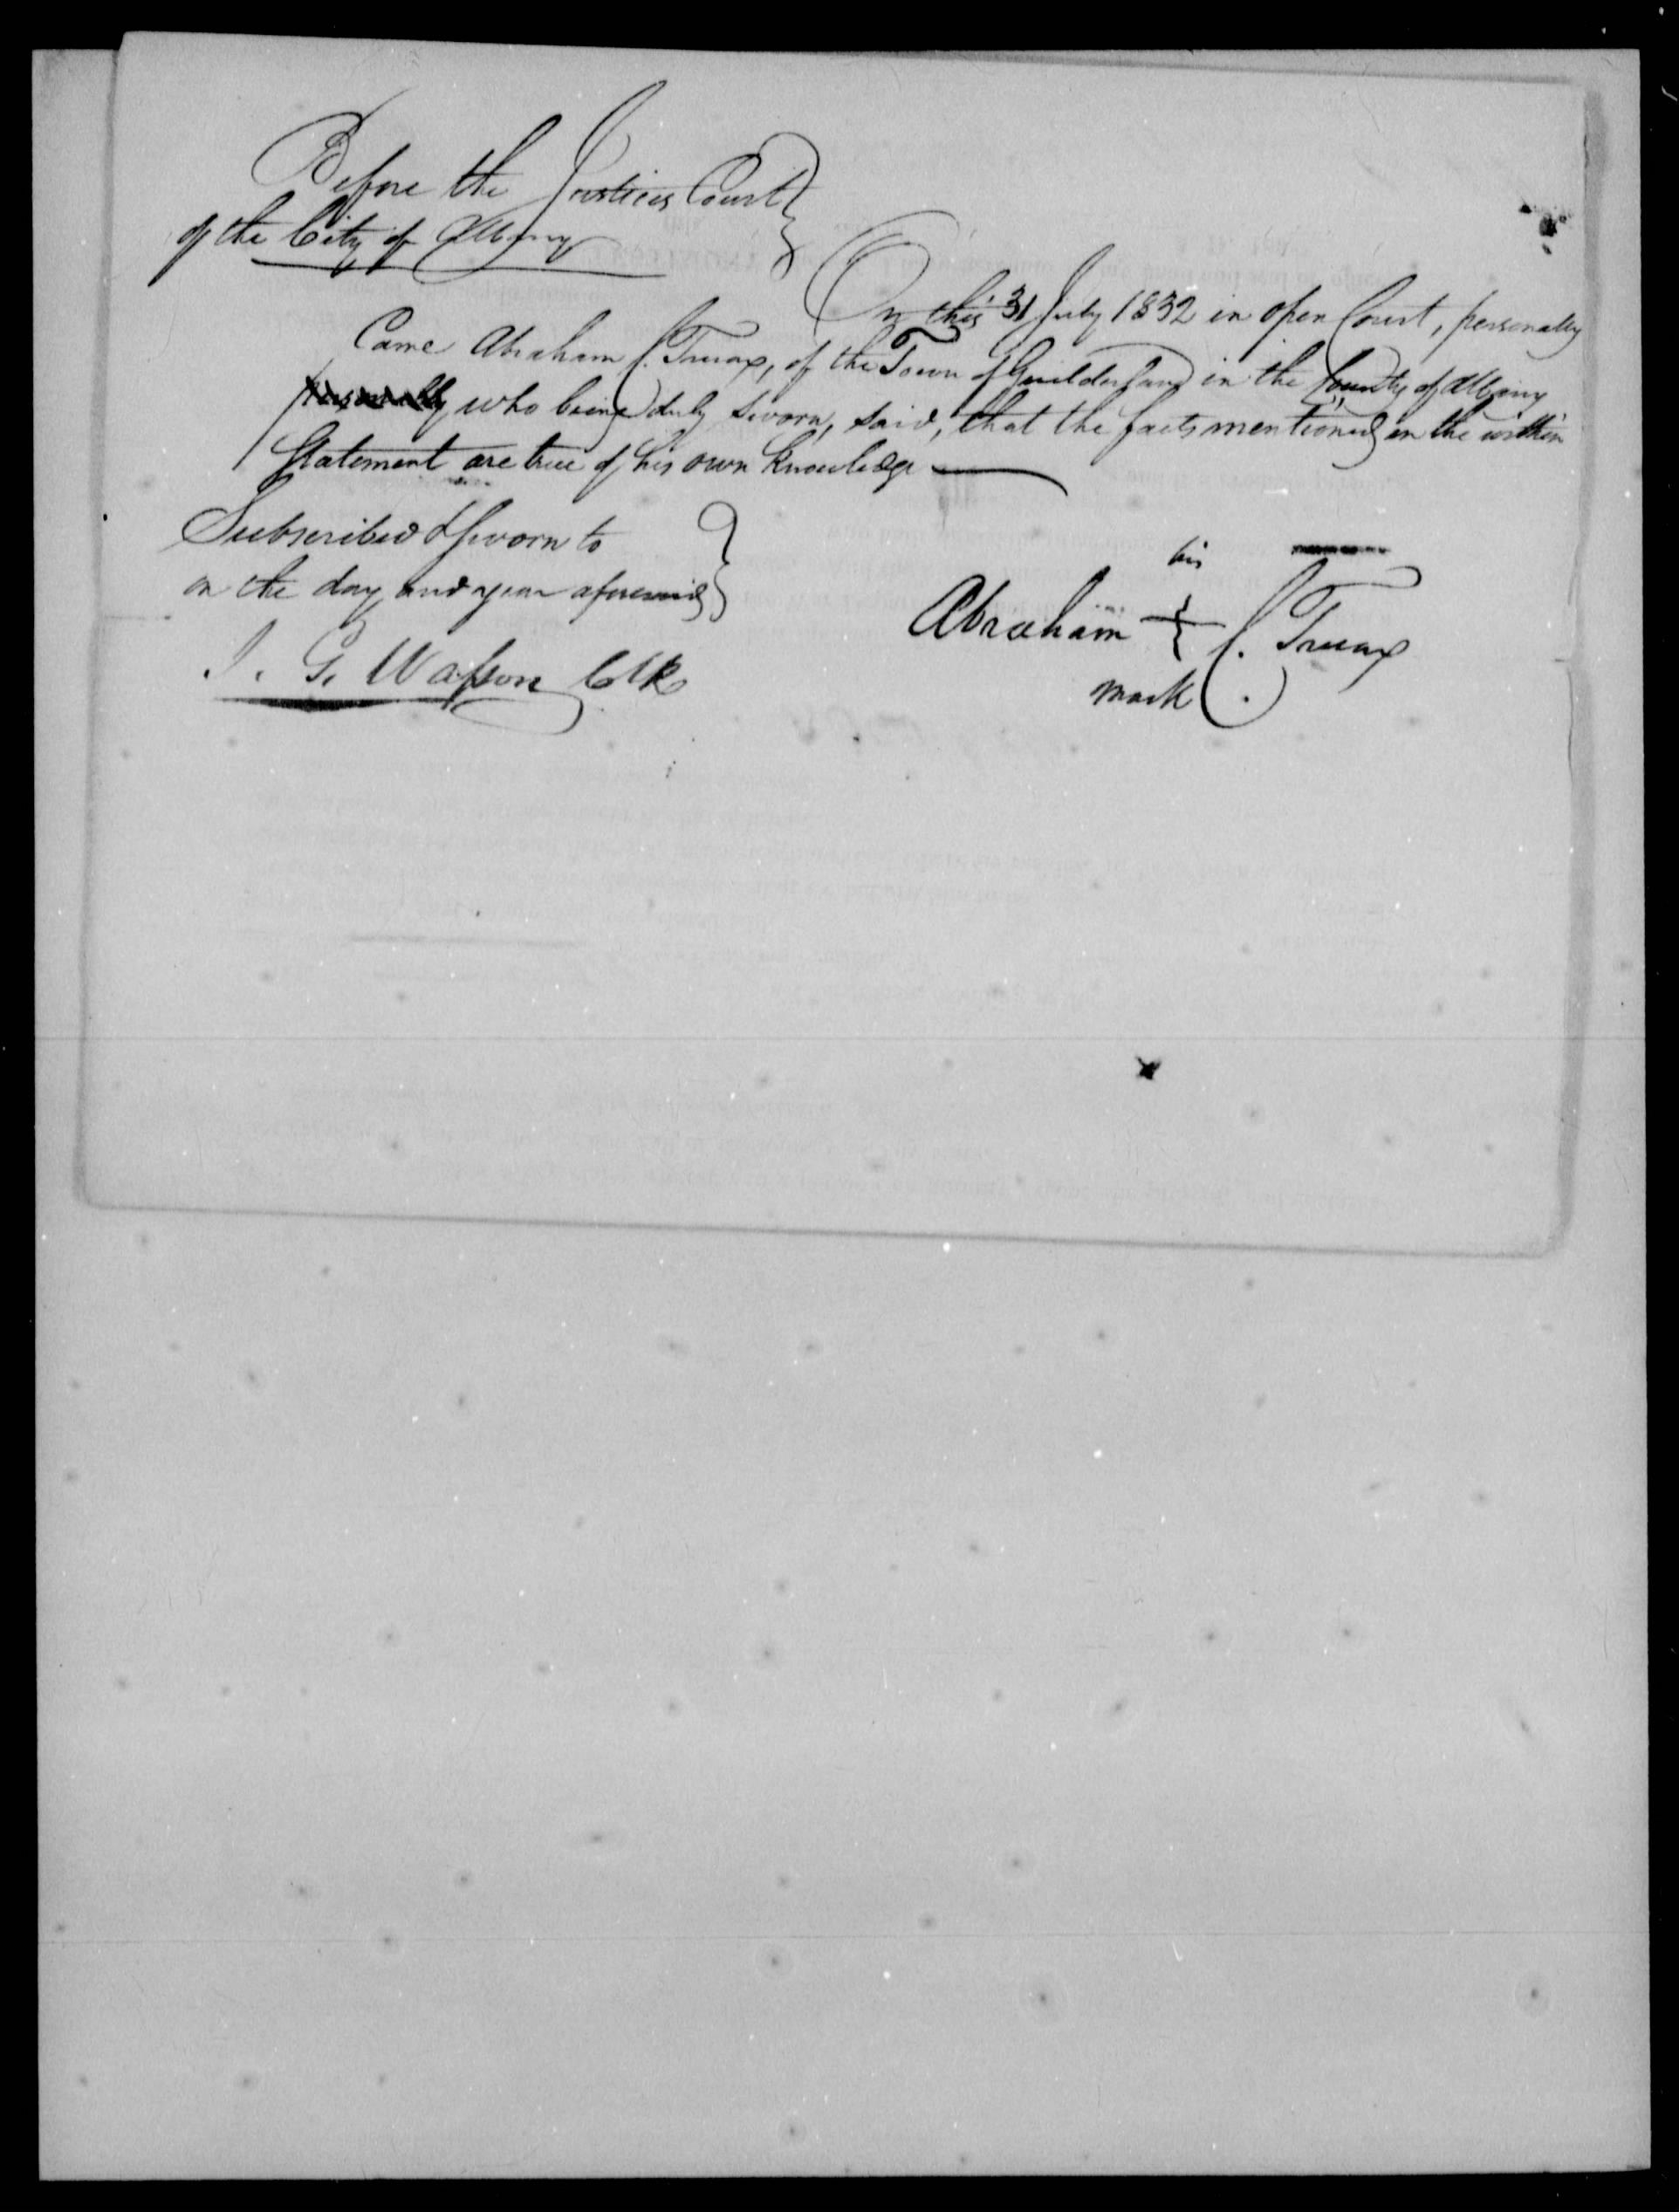 Before the Justices Court
of the City of Albany
On this 31 July 1832 in open Court, personally
Came Abraham C. Truax, of the Town of Guilderland in the County of Albany
personally who being duly sworn, said, that the facts mentioned in the within
Statement are true of his own knowledge
Subscribed & sworn to
on the day and year aforesaid
I. G. Watson Clk
his
Abraham + C. Truax
mark